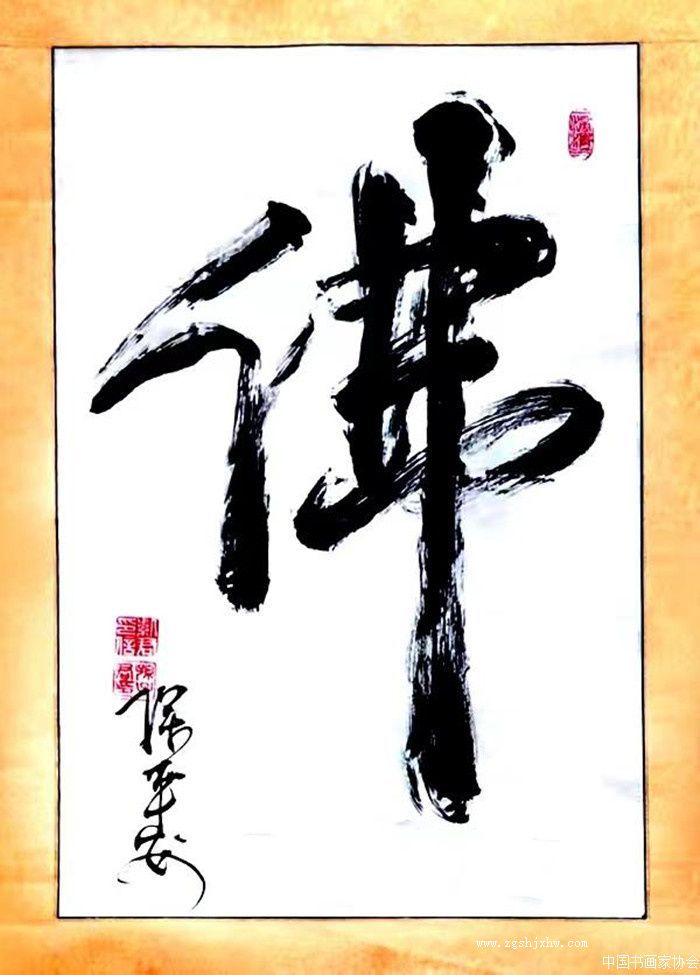 佛
保平安
www.zgshjxhw.com
中国书画家协会